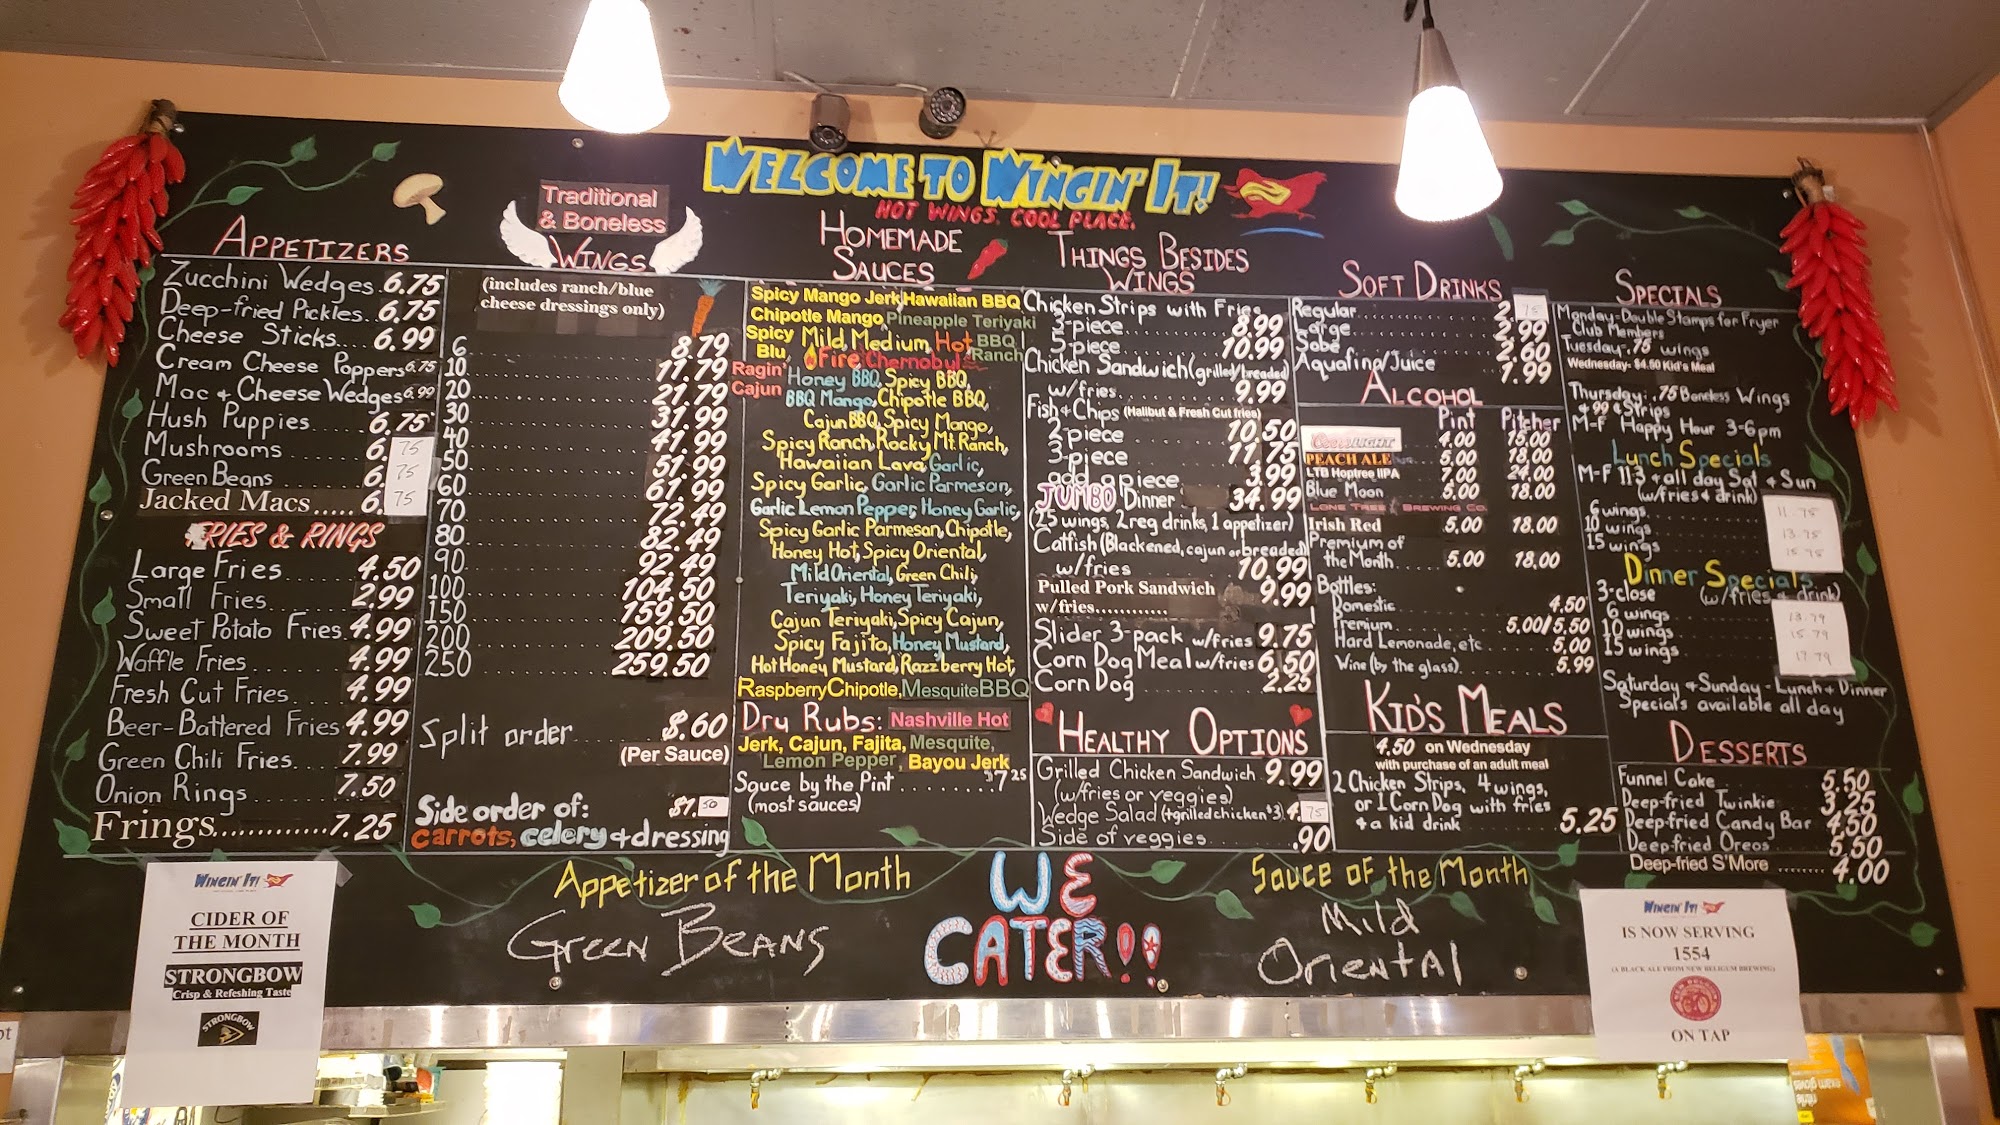 WELCOME TO WINGIN' IT!
HOT WINGS. COOL PLACE.
APPETIZERS
Zucchini Wedges 6.75
Deep-fried Pickles 6.75
Cheese Sticks 6.99
Cream Cheese Poppers 6.75
Mac & Cheese Wedges 6.99
Hush Puppies 6.75
Mushrooms 6.75
Green Beans 6.75
Jacked Macs 6.75
FRIES & RINGS
Large Fries 4.50
Small Fries 2.99
Sweet Potato Fries 4.99
Waffle Fries 4.99
Fresh Cut Fries 4.99
Beer-Battered Fries 4.99
Green Chili Fries 7.99
Onion Rings 7.50
Frings 7.25
Traditional
& Boneless
WINGS
(includes ranch/blue
cheese dressings only)
6 8.79
10 11.79
20 21.79
30 31.99
40 41.99
50 51.99
60 61.99
70 72.49
80 82.49
90 92.49
100 104.50
150 159.50
200 209.50
250 259.50
Split order $.60
(Per Sauce)
Side order of: $1.50
carrots, celery & dressing
HOMEMADE
SAUCES
Spicy Mango Jerk Hawaiian BBQ
Chipotle Mango Pineapple Teriyaki
Spicy Blu Mild, Medium, Hot, BBQ Ranch
Fire Chernobyl
Ragin' Cajun Honey BBQ, Spicy BBQ,
BBQ Mango, Chipotle BBQ,
Cajun BBQ, Spicy Mango,
Spicy Ranch, Rocky Mt. Ranch,
Hawaiian Lava, Garlic,
Spicy Garlic, Garlic Parmesan,
Garlic Lemon Pepper, Honey Garlic,
Spicy Garlic Parmesan, Chipotle,
Honey Hot, Spicy Oriental,
Mild Oriental, Green Chili,
Teriyaki, Honey Teriyaki,
Cajun Teriyaki, Spicy Cajun,
Spicy Fajita, Honey Mustard,
Hot Honey Mustard, Razzberry Hot,
Raspberry Chipotle, Mesquite BBQ
Dry Rubs: Nashville Hot
Jerk, Cajun, Fajita, Mesquite,
Lemon Pepper, Bayou Jerk
Sauce by the Pint $7.25
(most sauces)
THINGS BESIDES
WINGS
Chicken Strips with Fries
3-piece 8.99
5-piece 10.99
Chicken Sandwich (grilled/breaded)
w/fries 9.99
Fish & Chips (Halibut & Fresh Cut fries)
2-piece 10.50
3-piece 11.75
add a piece 3.99
JUMBO Dinner 34.99
(25 wings, 2 reg drinks, 1 appetizer)
Catfish (Blackened, cajun or breaded)
w/fries 10.99
Pulled Pork Sandwich
w/fries 9.99
Slider 3-pack w/fries 9.75
Corn Dog Meal w/fries 6.50
Corn Dog 2.25
HEALTHY OPTIONS
Grilled Chicken Sandwich 9.99
(w/fries or veggies)
Wedge Salad (+grilled chicken $3) 4.75
Side of veggies .90
SOFT DRINKS
Regular 2.75
Large 2.99
Sobe 2.60
Aquafina/Juice 1.99
ALCOHOL
Pint Pitcher
Coors LIGHT 4.00 15.00
PEACH ALE 5.00 18.00
LTB Hoptree IIPA 7.00 24.00
Blue Moon 5.00 18.00
LONE TREE BREWING CO.
Irish Red 5.00 18.00
Premium of
the Month 5.00 18.00
Bottles:
Domestic 4.50
Premium 5.00/5.50
Hard Lemonade, etc 5.00
Wine (by the glass) 5.99
KID'S MEALS
4.50 on Wednesday
with purchase of an adult meal
2 Chicken Strips, 4 wings,
or 1 Corn Dog with fries
& a kid drink 5.25
SPECIALS
Monday-Double Stamps for Fryer
Club Members
Tuesday-.75 wings
Wednesday- $4.50 Kid's Meal
Thursday-.75 Boneless Wings
& .99 ¢ Strips
M-F Happy Hour 3-6pm
Lunch Specials
M-F 11-3 & all day Sat & Sun
(w/fries & drink)
6 wings 11.75
10 wings 13.75
15 wings 15.75
Dinner Specials
3-close (w/fries & drink)
6 wings 13.79
10 wings 15.79
15 wings 17.79
Saturday & Sunday - Lunch & Dinner
Specials available all day
DESSERTS
Funnel Cake 5.50
Deep-fried Twinkie 3.25
Deep-fried Candy Bar 4.50
Deep-fried Oreos 5.50
Deep-fried S'More 4.00
Appetizer of the Month
GREEN BEANS
WE
CATER!!
Sauce of the Month
Mild
Oriental
WINGIN' IT!
CIDER OF
THE MONTH
STRONGBOW
Crisp & Refeshing Taste
STRONGBOW
WINGIN' IT!
IS NOW SERVING
1554
(A BLACK ALE FROM NEW BELIGUM BREWING)
ON TAP